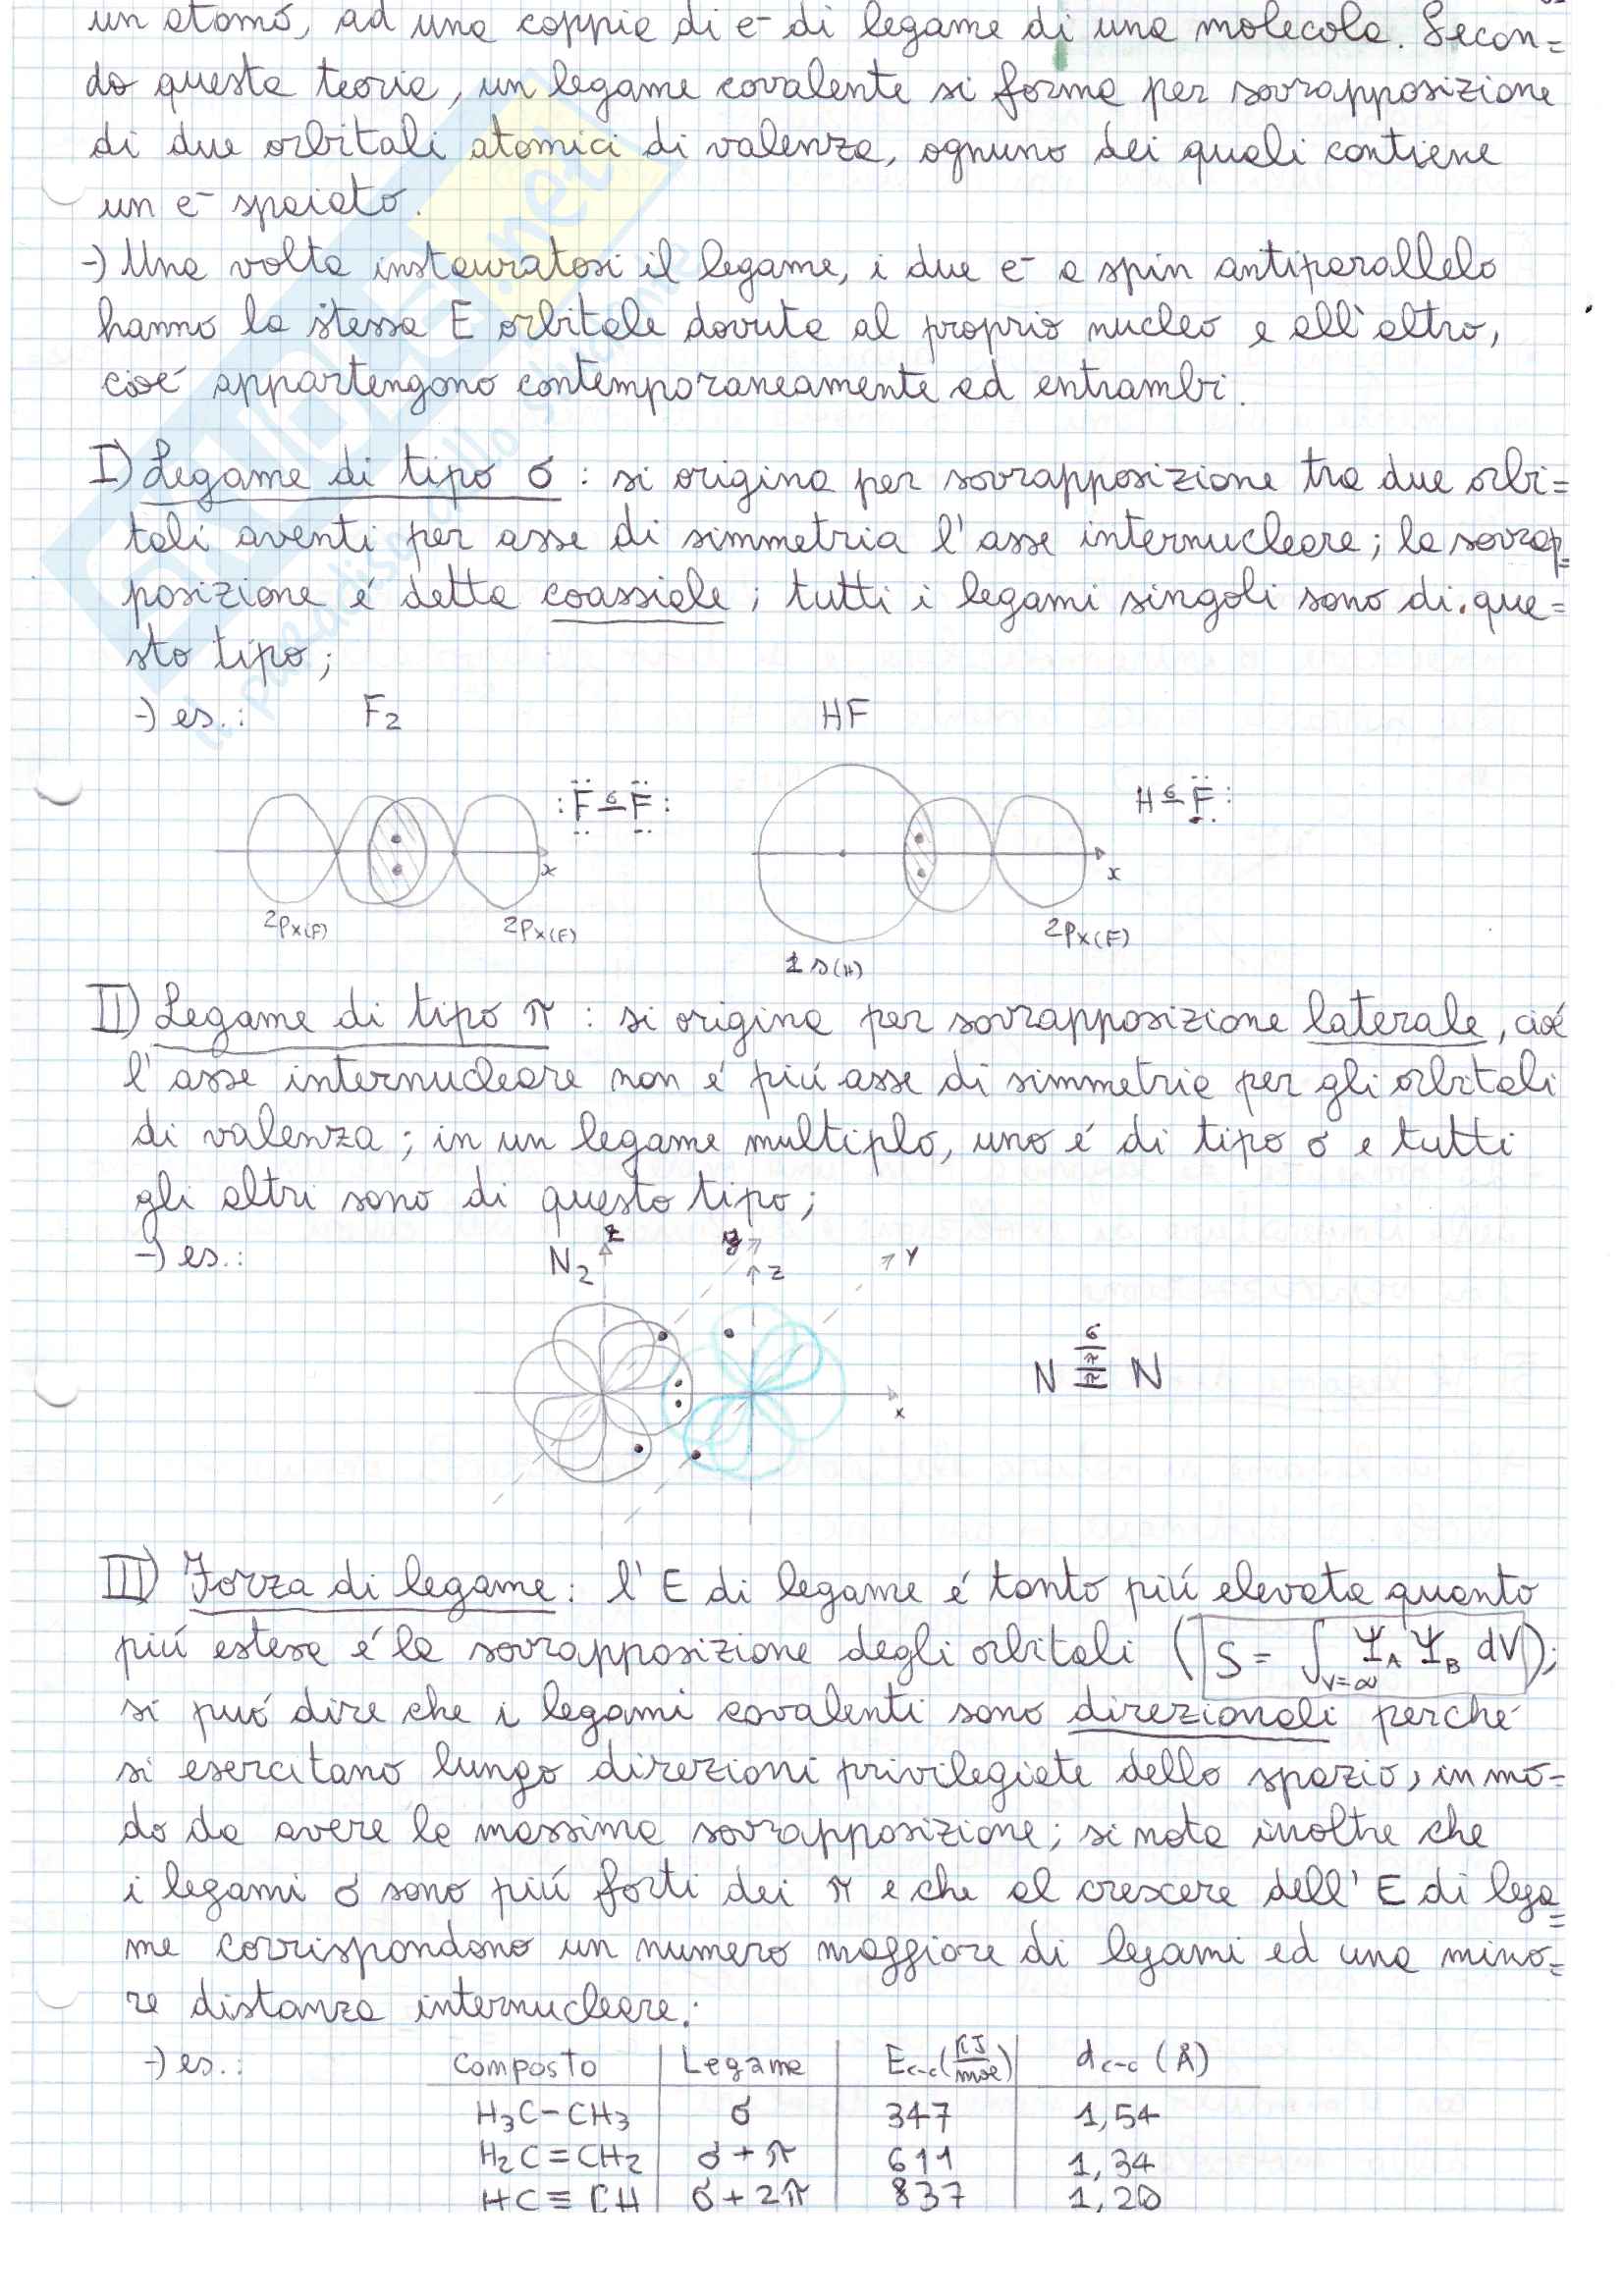 un atomo, ad una coppia di e⁻ di legame di una molecola. Secon=
do questa teoria, un legame covalente si forma per sovrapposizione
di due orbitali atomici di valenza, ognuno dei quali contiene
un e⁻ spaiato.
-) Una volta instauratosi il legame, i due e⁻ a spin antiparallelo
hanno la stessa E orbitale dovuta al proprio nucleo e all'altro,
cioé appartengono contemporaneamente ad entrambi.
I) Legame di tipo σ : si origina per sovrapposizione tra due orbi=
tali aventi per asse di simmetria l'asse internucleare; la sovrap=
posizione é detta coassiale; tutti i legami singoli sono di que=
sto tipo;
-) es.: F₂ HF
:F σ F: H σ F:
x x
2Px(F) 2Px(F) 2Px(F)
1s(H)
II) Legame di tipo π : si origina per sovrapposizione laterale, cioé
l'asse internucleare non é piú asse di simmetria per gli orbitali
di valenza; in un legame multiplo, uno é di tipo σ e tutti
gli altri sono di questo tipo;
-) es.: N₂ z y z Y
σ
π
N π N
x
III) Forza di legame: l'E di legame é tanto piú elevata quanto
piú estesa é la sovrapposizione degli orbitali (S = ∫v=∞ ΨA ΨB dV);
si puó dire che i legami covalenti sono direzionali perché
si esercitano lungo direzioni privilegiate dello spazio, in mo-
do da avere la massima sovrapposizione; si nota inoltre che
i legami σ sono piú forti dei π e che al crescere dell'E di lega=
me corrispondono un numero maggiore di legami ed una mino=
re distanza internucleare:
-) es.: Composto Legame Ec-c (KJ/mole) dc-c (Å)
H₃C-CH₃ σ 347 1,54
H₂C=CH₂ σ+π 611 1,34
HC≡CH σ+2π 837 1,20